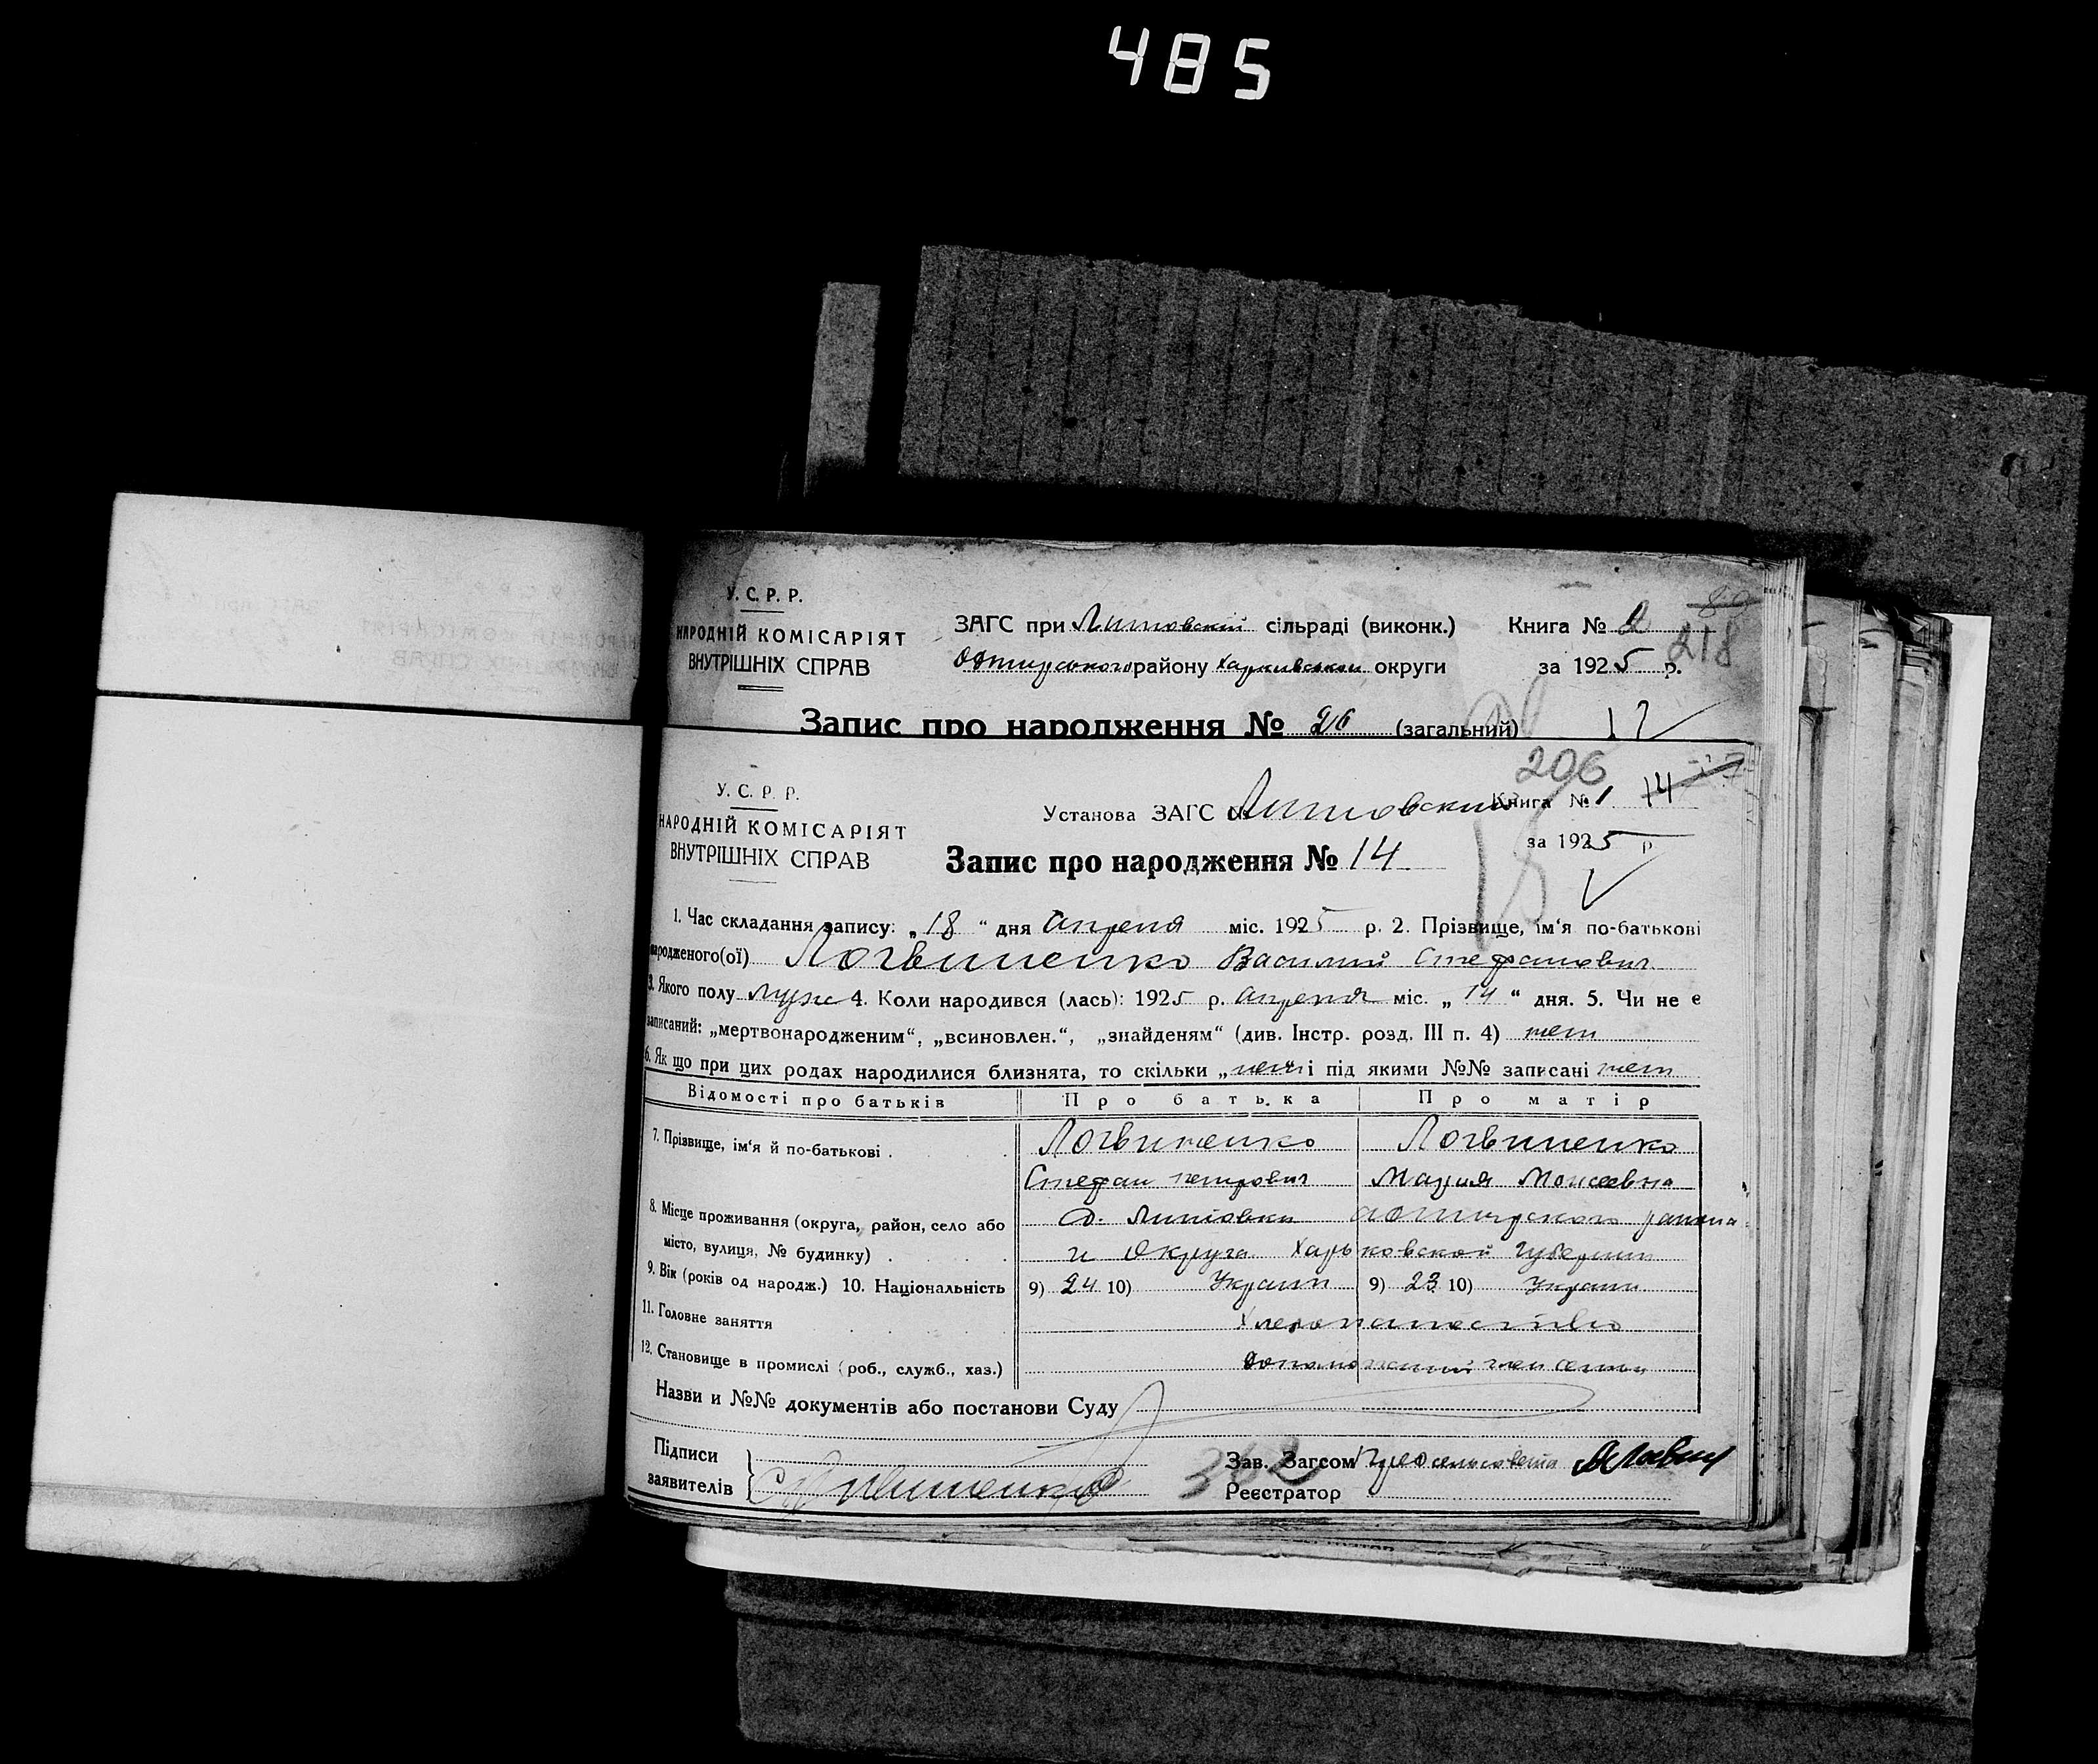 485
У. С. Р. Р.
НАРОДНІЙ КОМІСАРІЯТ
ВНУТРІШНІХ СПРАВ
ЗАГС при Липовский сільраді (виконк.) Книга № 2
району Харкивской округи за 1925 р.
218
Запис про народження № 26 (загальний) 12
206
У. С. Р. Р.
НАРОДНІЙ КОМІСАРІЯТ
ВНУТРІШНІХ СПРАВ
Установа ЗАГС Липовский Книга № 1 14
за 1925 р
Запис про народження № 14
1. Час складання запису: „18“ дня апреля міс. 1925 р. 2. Прізвище, ім'я по-батькові
народженого(ої) Логвиненко Василий Стефанович
3. Якого полу муж 4. Коли народився (лась): 1925 р. апреля міс. „14“ дня. 5. Чи не є
записаний: „мертвонародженим“, „всиновлен.“, „знайденям“ (див. Інстр. розд. III п. 4) нет
6. Як що при цих родах народилися близнята, то скільки „нет“ і під якими №№ записані нет
Відомості про батьків Про батька Про матір
7. Прізвище, ім'я й по-батькові . Логвиненко Логвиненко
Стефан петрович Мария Моисеевна
8. Місце проживання (округа, район, село або с. Липовки района
місто, вулиця, № будинку) . и Округа Харьковской Губернии
9. Вік (років од народж.) 10. Національність 9) 24 10) Украин 9) 23 10) Украин
11. Головне заняття
12. Становище в промислі (роб., служб., хаз.)
Назви и №№ документів або постанови Суду
Підписи
заявителів
Логвиненко
362
Зав. Загсом
Реєстратор